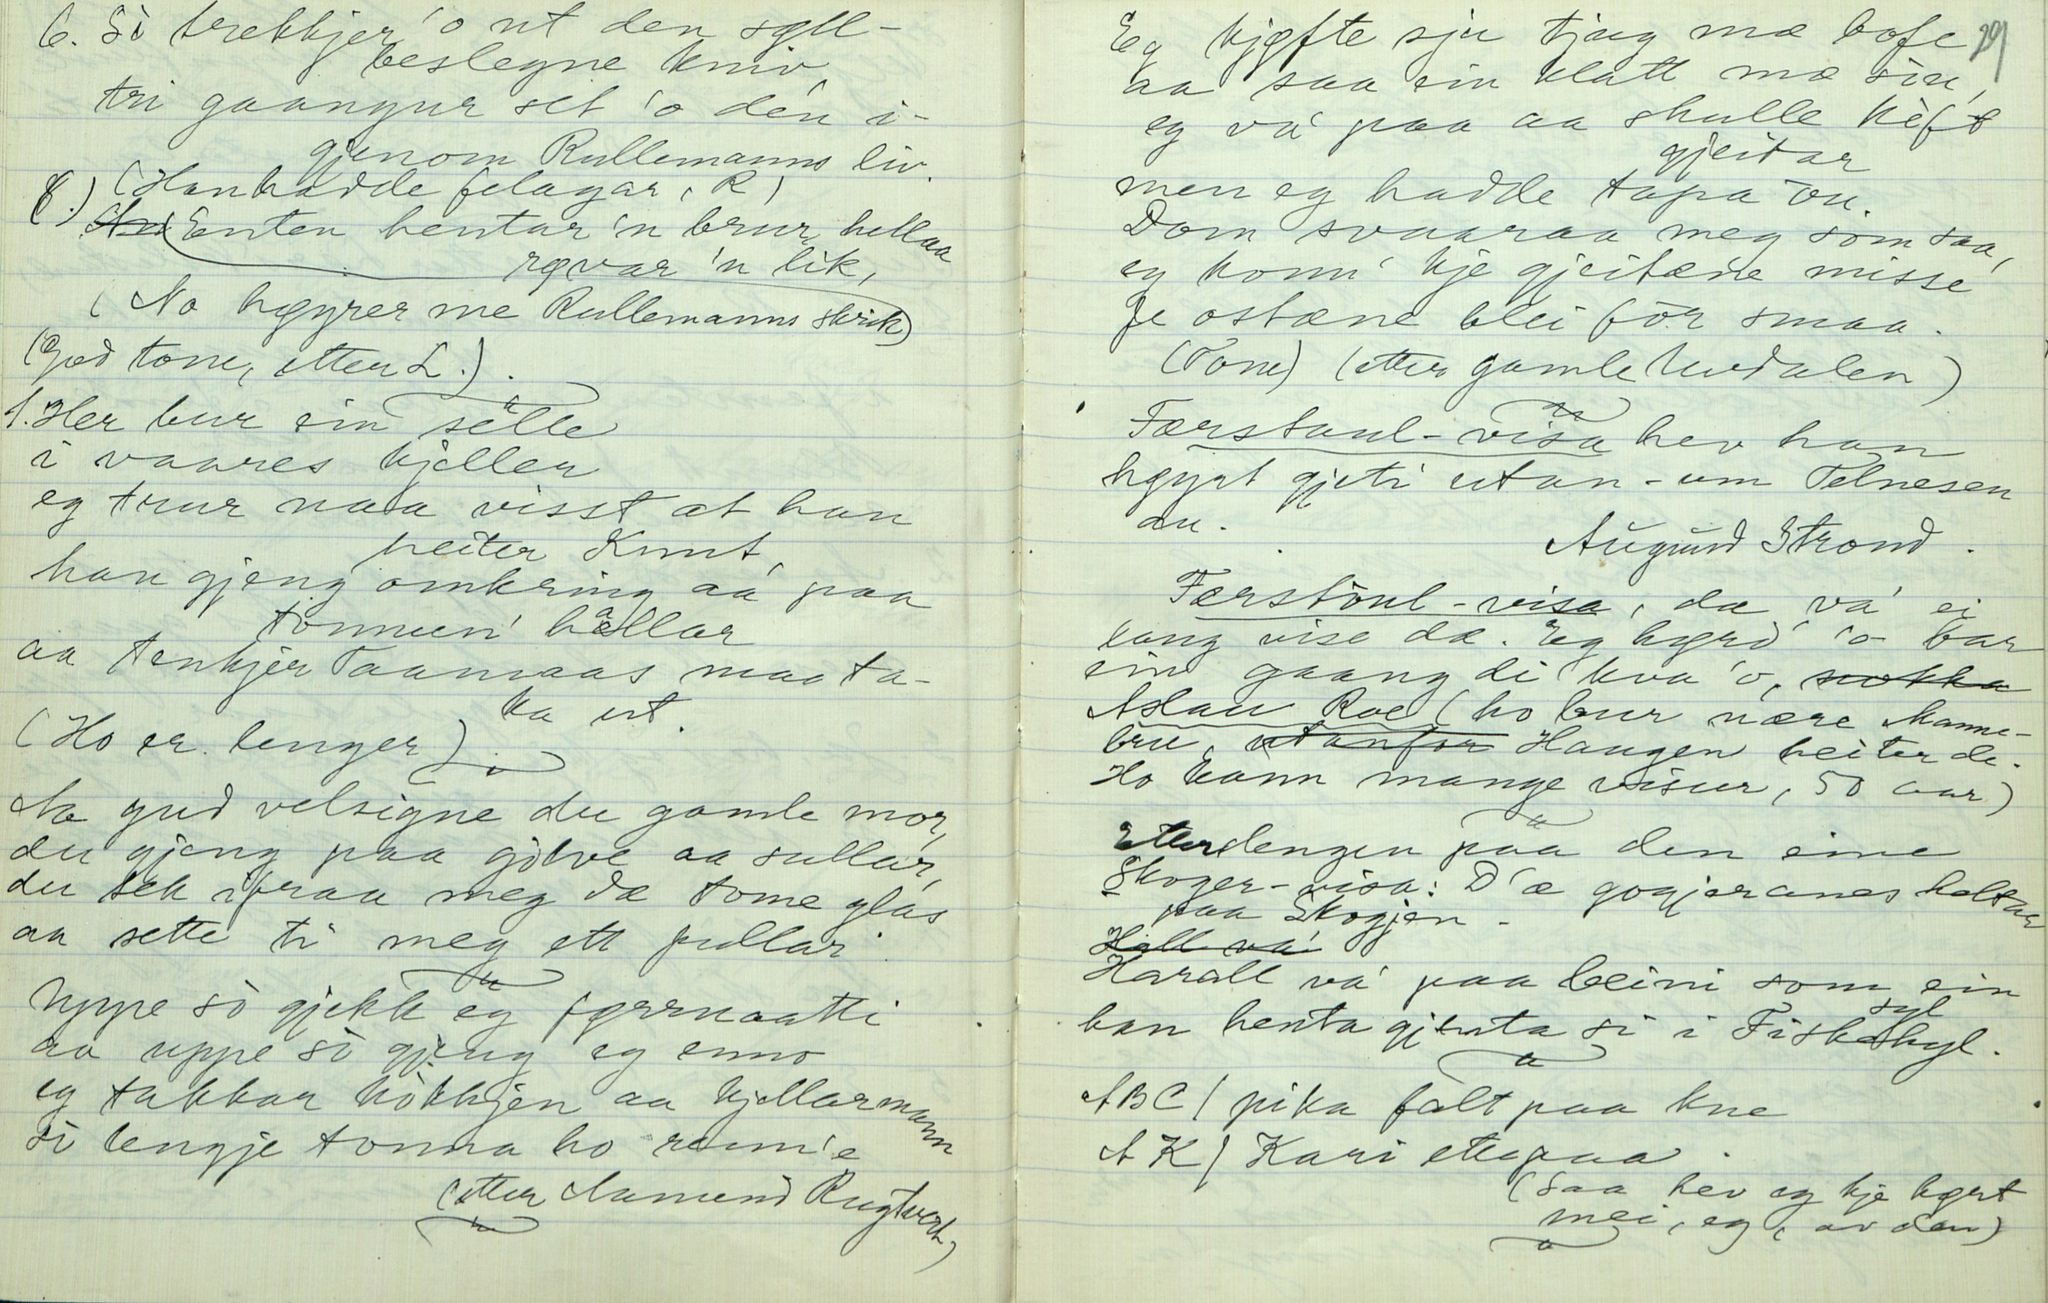 6. Si trekkjer 'o ut den syll-
beslegne kniv,
tri gaangur set 'o den i-
gjenom Rullemanns liv.
(Han hadde felagar, R)
8.) Enten hentar 'n brur, hellaa
røvar 'n lik,
(No høyrer me Rullemanns skrik)
(God tone, etter L.)
1. Her bur ein selle
i vaares kjeller
eg trur naa visst at han
heiter Knut,
han gjeng omkring aa paa
tonnun' hallar
aa tenkjer Taamaas maa ta-
ka ut.
(Ho er lenger)
Aa gud velsigne du gamle mor,
du gjeng paa golve aa sullar,
du tek ifraa meg dæ tome glas
aa sette ti meg ett fullar.
Uppe so gjekk eg fyrrnaatti
aa uppe so gjeng eg enno
eg takkar kokkjen aa kjellarmann
so lengje tonna ho renn'e
(etter Aamund Rugtveit)
29
Eg kjøfte sju tjug mæ bofe
aa saa ein klatt mæ sin,
eg va' paa aa skulle kjøft
gjeitar
men eg hadde tapa 'ou.
Dom svaaraa meg som saa,
eg konn' kje gjeitæne misse
fe ostæne blei for smaa.
(Tone) (etter gamle Uvdalen)
Færstaul-visa hev han
høyrt gjeti utan-um Telnesen
au.
Augund Strond.
Færstoul-visa, da va' ei
lang vise dæ. Eg høyrd' 'o bar
ein gaang di kva 'o,
Aslau Roe (ho bur nære Manne-
bru, Haugen heiter de.
Ho kann mange visur, 50 aar)
Etterslengen paa den eine
Skoger-visa: D'æ gogjerænes
paa Skogjen -
Hall va'
Harall va' paa beini som ein
syl
han henta gjenta si i Fiskekyl.
ABC / pika falt paa kne
AK / Kari ettepaa.
(saa hev eg kje høyrt
mei, eg, av den)